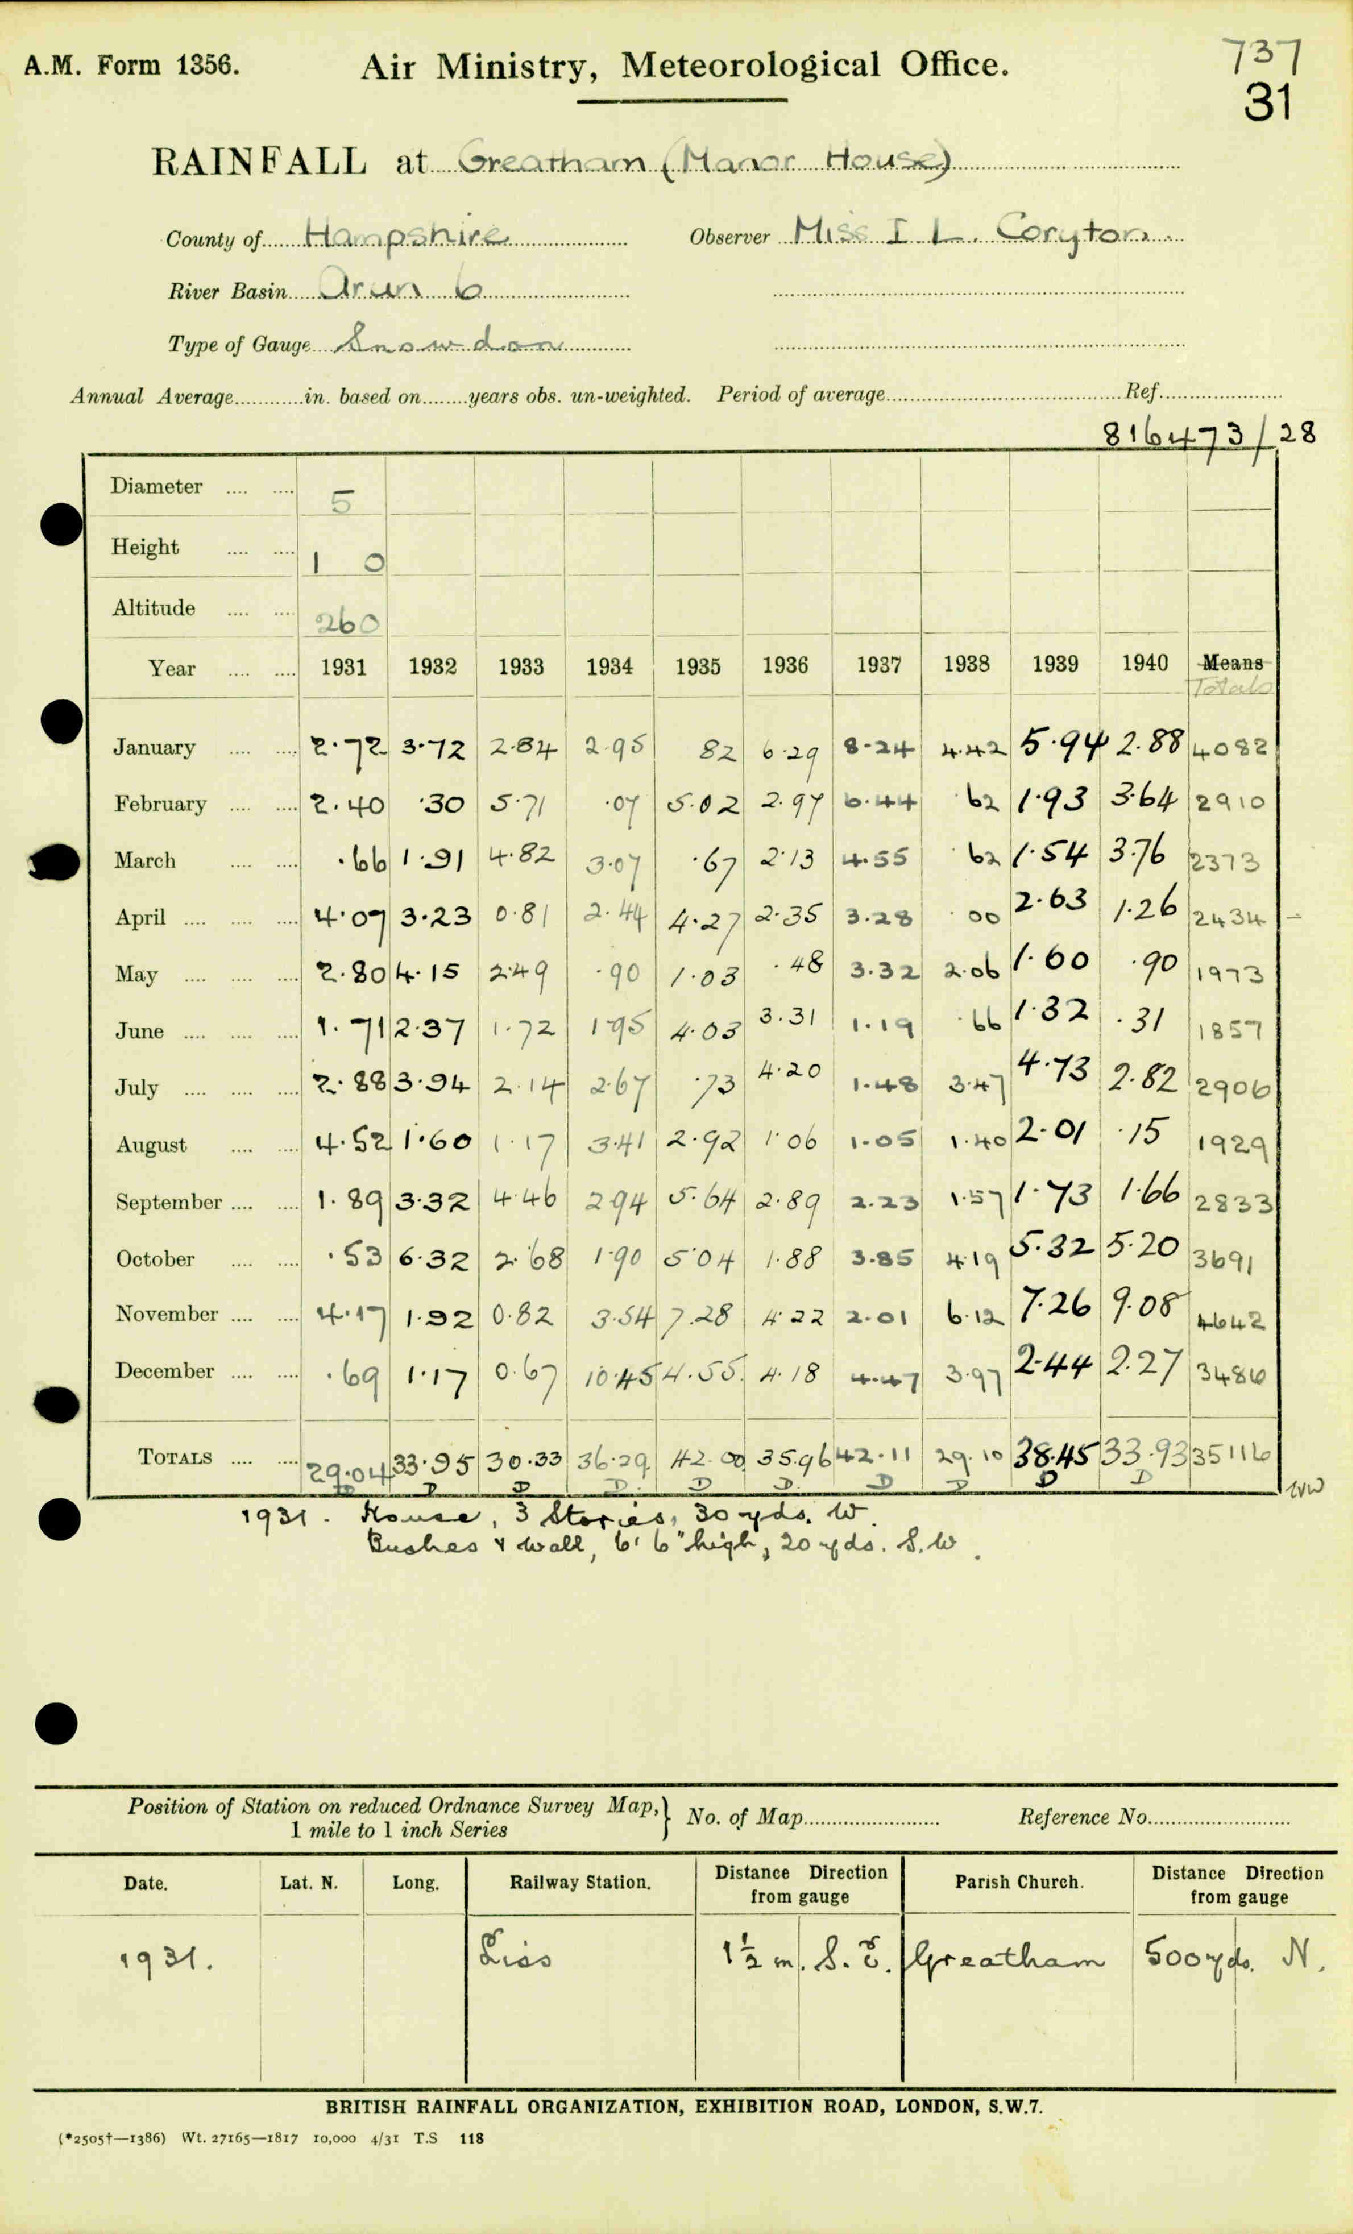 A.M. Form 1356.
Air Ministry, Meteorological Office.
737
31
RAINFALL at Greatham (Manor House)
County of Hampshire Observer Miss I L. Coryton
River Basin Arun 6
Type of Gauge Snowdon
Annual Average in. based on years obs. un-weighted. Period of average Ref.
816473/28
Diameter 5
Height 1 0
Altitude 260
Year 1931 1932 1933 1934 1935 1936 1937 1938 1939 1940 Means
Totals
January 2.72 3.72 2.84 2.95 82 6.29 8.24 4.42 5.94 2.88 4082
February 2.40 .30 5.71 .07 5.02 2.97 6.44 .62 1.93 3.64 2910
March .66 1.91 4.82 3.07 .67 2.13 4.55 .62 1.54 3.76 2373
April 4.07 3.23 0.81 2.44 4.27 2.35 3.28 00 2.63 1.26 2434
May 2.80 4.15 2.49 .90 1.03 .48 3.32 2.06 1.60 .90 1973
June 1.71 2.37 1.72 1.95 4.03 3.31 1.19 .66 1.32 .31 1857
July 2.88 3.94 2.14 2.67 .73 4.20 1.48 3.47 4.73 2.82 2906
August 4.52 1.60 1.17 3.41 2.92 1.06 1.05 1.40 2.01 .15 1929
September 1.89 3.32 4.46 2.94 5.64 2.89 2.23 1.57 1.73 1.66 2833
October .53 6.32 2.68 1.90 5.04 1.88 3.85 4.19 5.32 5.20 3691
November 4.17 1.92 0.82 3.54 7.28 4.22 2.01 6.12 7.26 9.08 4642
December .69 1.17 0.67 10.45 4.55 4.18 4.47 3.97 2.44 2.27 3486
TOTALS 29.04 33.95 30.33 36.29 42.00 35.96 42.11 29.10 38.45 33.93 35116
D D D D D D D D D D
1931. House, 3 Stories, 30 yds. W.
Bushes & wall, 6' 6" high, 20 yds. S.W.
Position of Station on reduced Ordnance Survey Map,
1 mile to 1 inch Series
No. of Map Reference No.
Date. Lat. N. Long. Railway Station. Distance Direction from gauge Parish Church. Distance Direction from gauge
1931. Liss 1½ m. S.E. Greatham 500 yds. N.
BRITISH RAINFALL ORGANIZATION, EXHIBITION ROAD, LONDON, S.W.7.
(*2505†—1386) Wt. 27165—1817 10,000 4/31 T.S 118